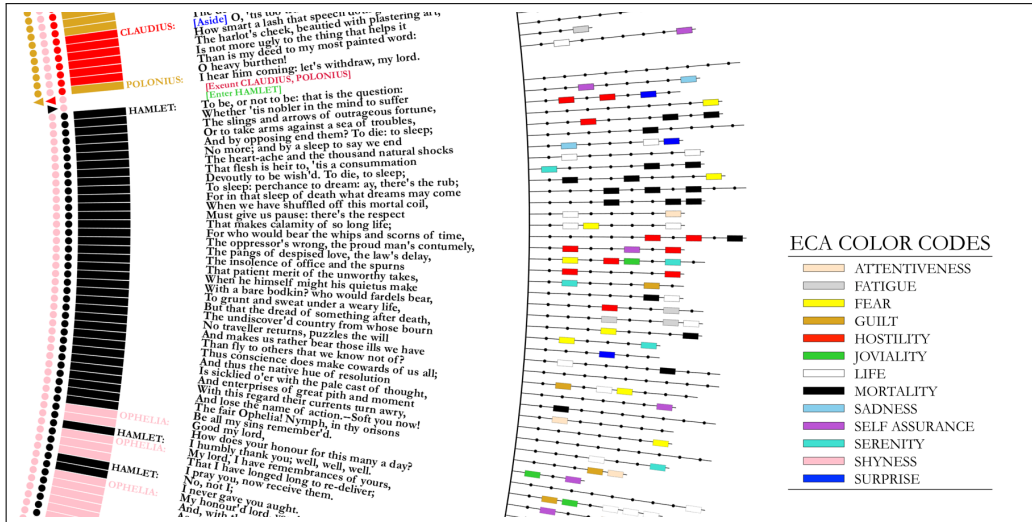 CLAUDIUS:
POLONIUS:
HAMLET:
OPHELIA:
HAMLET:
OPHELIA:
HAMLET:
OPHELIA:
[Aside] O, 'tis too
How smart a lash that speech
The harlot's cheek, beautied with plastering art,
Is not more ugly to the thing that helps it
Than is my deed to my most painted word:
O heavy burthen!
I hear him coming: let's withdraw, my lord.
[Exeunt CLAUDIUS, POLONIUS]
[Enter HAMLET]
To be, or not to be: that is the question:
Whether 'tis nobler in the mind to suffer
The slings and arrows of outrageous fortune,
Or to take arms against a sea of troubles,
And by opposing end them? To die: to sleep;
No more; and by a sleep to say we end
The heart-ache and the thousand natural shocks
That flesh is heir to, 'tis a consummation
Devoutly to be wish'd. To die, to sleep;
To sleep: perchance to dream: ay, there's the rub;
For in that sleep of death what dreams may come
When we have shuffled off this mortal coil,
Must give us pause: there's the respect
That makes calamity of so long life;
For who would bear the whips and scorns of time,
The oppressor's wrong, the proud man's contumely,
The pangs of despised love, the law's delay,
The insolence of office and the spurns
That patient merit of the unworthy takes,
When he himself might his quietus make
With a bare bodkin? who would fardels bear,
To grunt and sweat under a weary life,
But that the dread of something after death,
The undiscover'd country from whose bourn
No traveller returns, puzzles the will
And makes us rather bear those ills we have
Than fly to others that we know not of?
Thus conscience does make cowards of us all;
And thus the native hue of resolution
Is sicklied o'er with the pale cast of thought,
And enterprises of great pith and moment
With this regard their currents turn awry,
And lose the name of action.--Soft you now!
The fair Ophelia! Nymph, in thy orisons
Be all my sins remember'd.
Good my lord,
How does your honour for this many a day?
I humbly thank you; well, well, well.
My lord, I have remembrances of yours,
That I have longed long to re-deliver;
I pray you, now receive them.
No, not I;
I never gave you aught.
My honour'd lord,
And, with
ECA COLOR CODES
ATTENTIVENESS
FATIGUE
FEAR
GUILT
HOSTILITY
JOVIALITY
LIFE
MORTALITY
SADNESS
SELF ASSURANCE
SERENITY
SHYNESS
SURPRISE